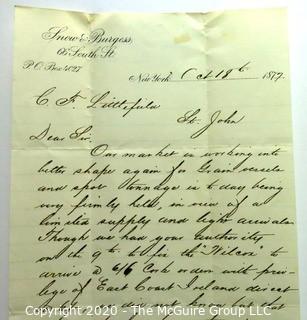 Snow & Burgess,
66 South St.
P.O. Box 4027
New York Oct 18th 1877
C. F. Littlefield
St. John
Dear Sir.
Our market is working into
better shape again for Grain vessels
and spot tonnage is to day being
very firmly held, in view of a
limited supply and light arrivals
Though we had your authority
on the 9th to fix the "Wilcox" to
arrive @ 6/6 Cork orders with priv-
lege of East Coast Ireland direct
do not know but that
Copyright 2020 - The Stamp Farm